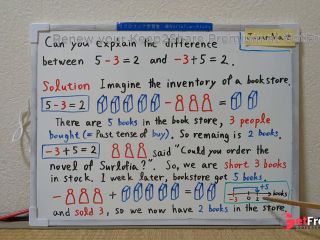 Can you explain the difference
between 5-3=2 and -3+5=2.
Solution Imagine the inventory of a bookstore.
5-3=2
There are 5 books in the book store, 3 people
bought (= Past tense of buy). So remaing is 2 books.
-3+5=2 said "Could you order the
novel of Surlofia?" So, we are short 3 books
in stock. 1 week later, bookstore got 5 books.
+5
books
-3 0 2
and sold 3, so we now have 2 books in the store.